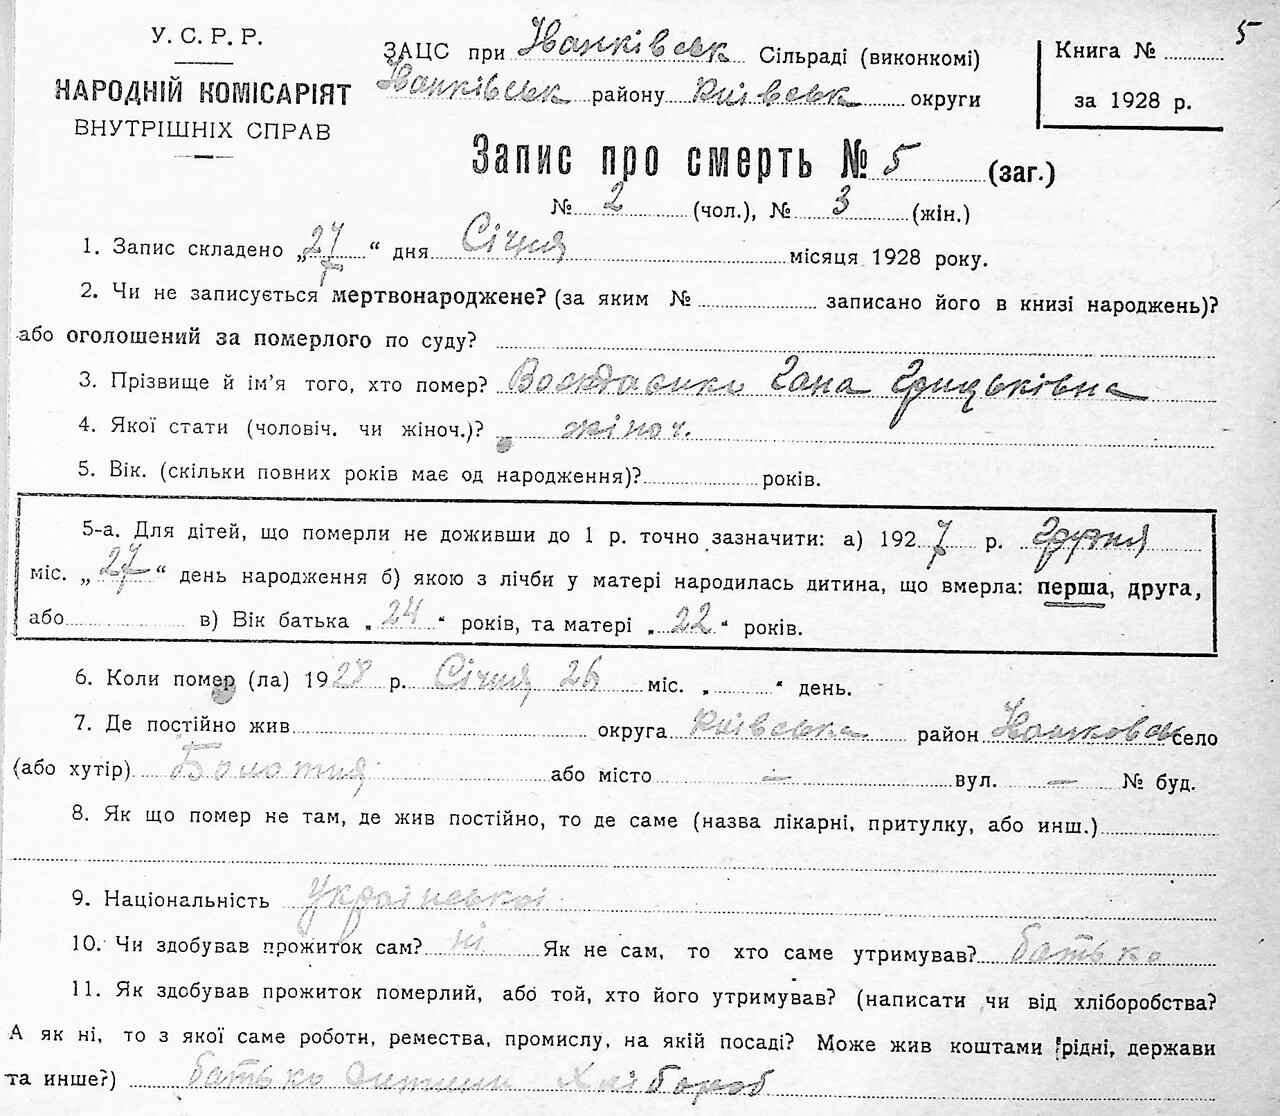 5
У. С. Р. Р.
НАРОДНІЙ КОМІСАРІЯТ
ВНУТРІШНІХ СПРАВ
ЗАЦС при Іванківськ Сільраді (виконкомі)
Іванківськ району Київськ округи
Книга №
за 1928 р.
Запис про смерть № 5 (заг.)
№ 2 (чол.), № 3 (жін.)
1. Запис складено „27“ дня Січня місяця 1928 року.
2. Чи не записується мертвонароджене? (за яким № записано його в книзі народжень)?
або оголошений за померлого по суду?
3. Прізвище й ім’я того, хто помер? Гана Грицьківна
4. Якої стати (чоловіч. чи жіноч.)? жіноч.
5. Вік. (скільки повних років має од народження)? років.
5-а. Для дітей, що померли не доживши до 1 р. точно зазначити: а) 1927 р. Грудня
міс. „27“ день народження б) якою з лічби у матері народилась дитина, що вмерла: перша, друга,
або в) Вік батька „24“ років, та матері „22“ років.
6. Коли помер (ла) 1928 р. Січня 26 міс. „ “ день.
7. Де постійно жив округа Київська район село
(або хутір) Болотня або місто — вул. — № буд.
8. Як що помер не там, де жив постійно, то де саме (назва лікарні, притулку, або инш.)
9. Національність Української
10. Чи здобував прожиток сам? ні Як не сам, то хто саме утримував? батько
11. Як здобував прожиток померлий, або той, хто його утримував? (написати чи від хліборобства?
А як ні, то з якої саме роботи, ремества, промислу, на якій посаді? Може жив коштами рідні, держави
та инше?) батько дитини Хлібороб